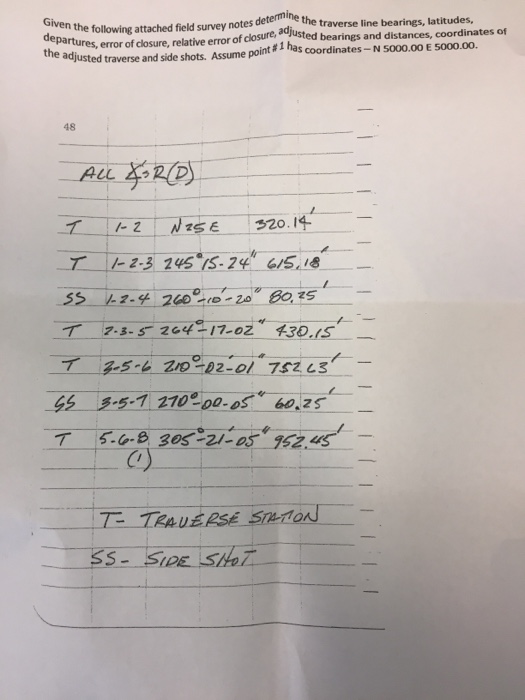 Given the following attached field survey notes determine the traverse line bearings, latitudes,
departures, error of closure, relative error of closure, adjusted bearings and distances, coordinates of
the adjusted traverse and side shots. Assume point # 1 has coordinates – N 5000.00 E 5000.00.
48
ALL ∠'s R(D)
T 1-2 N25E 320.14'
T 1-2-3 245°15-24" 615.18'
SS 1-2-4 260°-10'-20" 80.25'
T 2-3-5 264°-17-02" 430.15'
T 3-5-6 210°-02'-01" 752.63'
SS 3-5-7 270°-00-05" 60.25'
T 5-6-8 305°-21'-05" 952.45'
(1)
T- TRAVERSE STATION
SS- SIDE SHOT